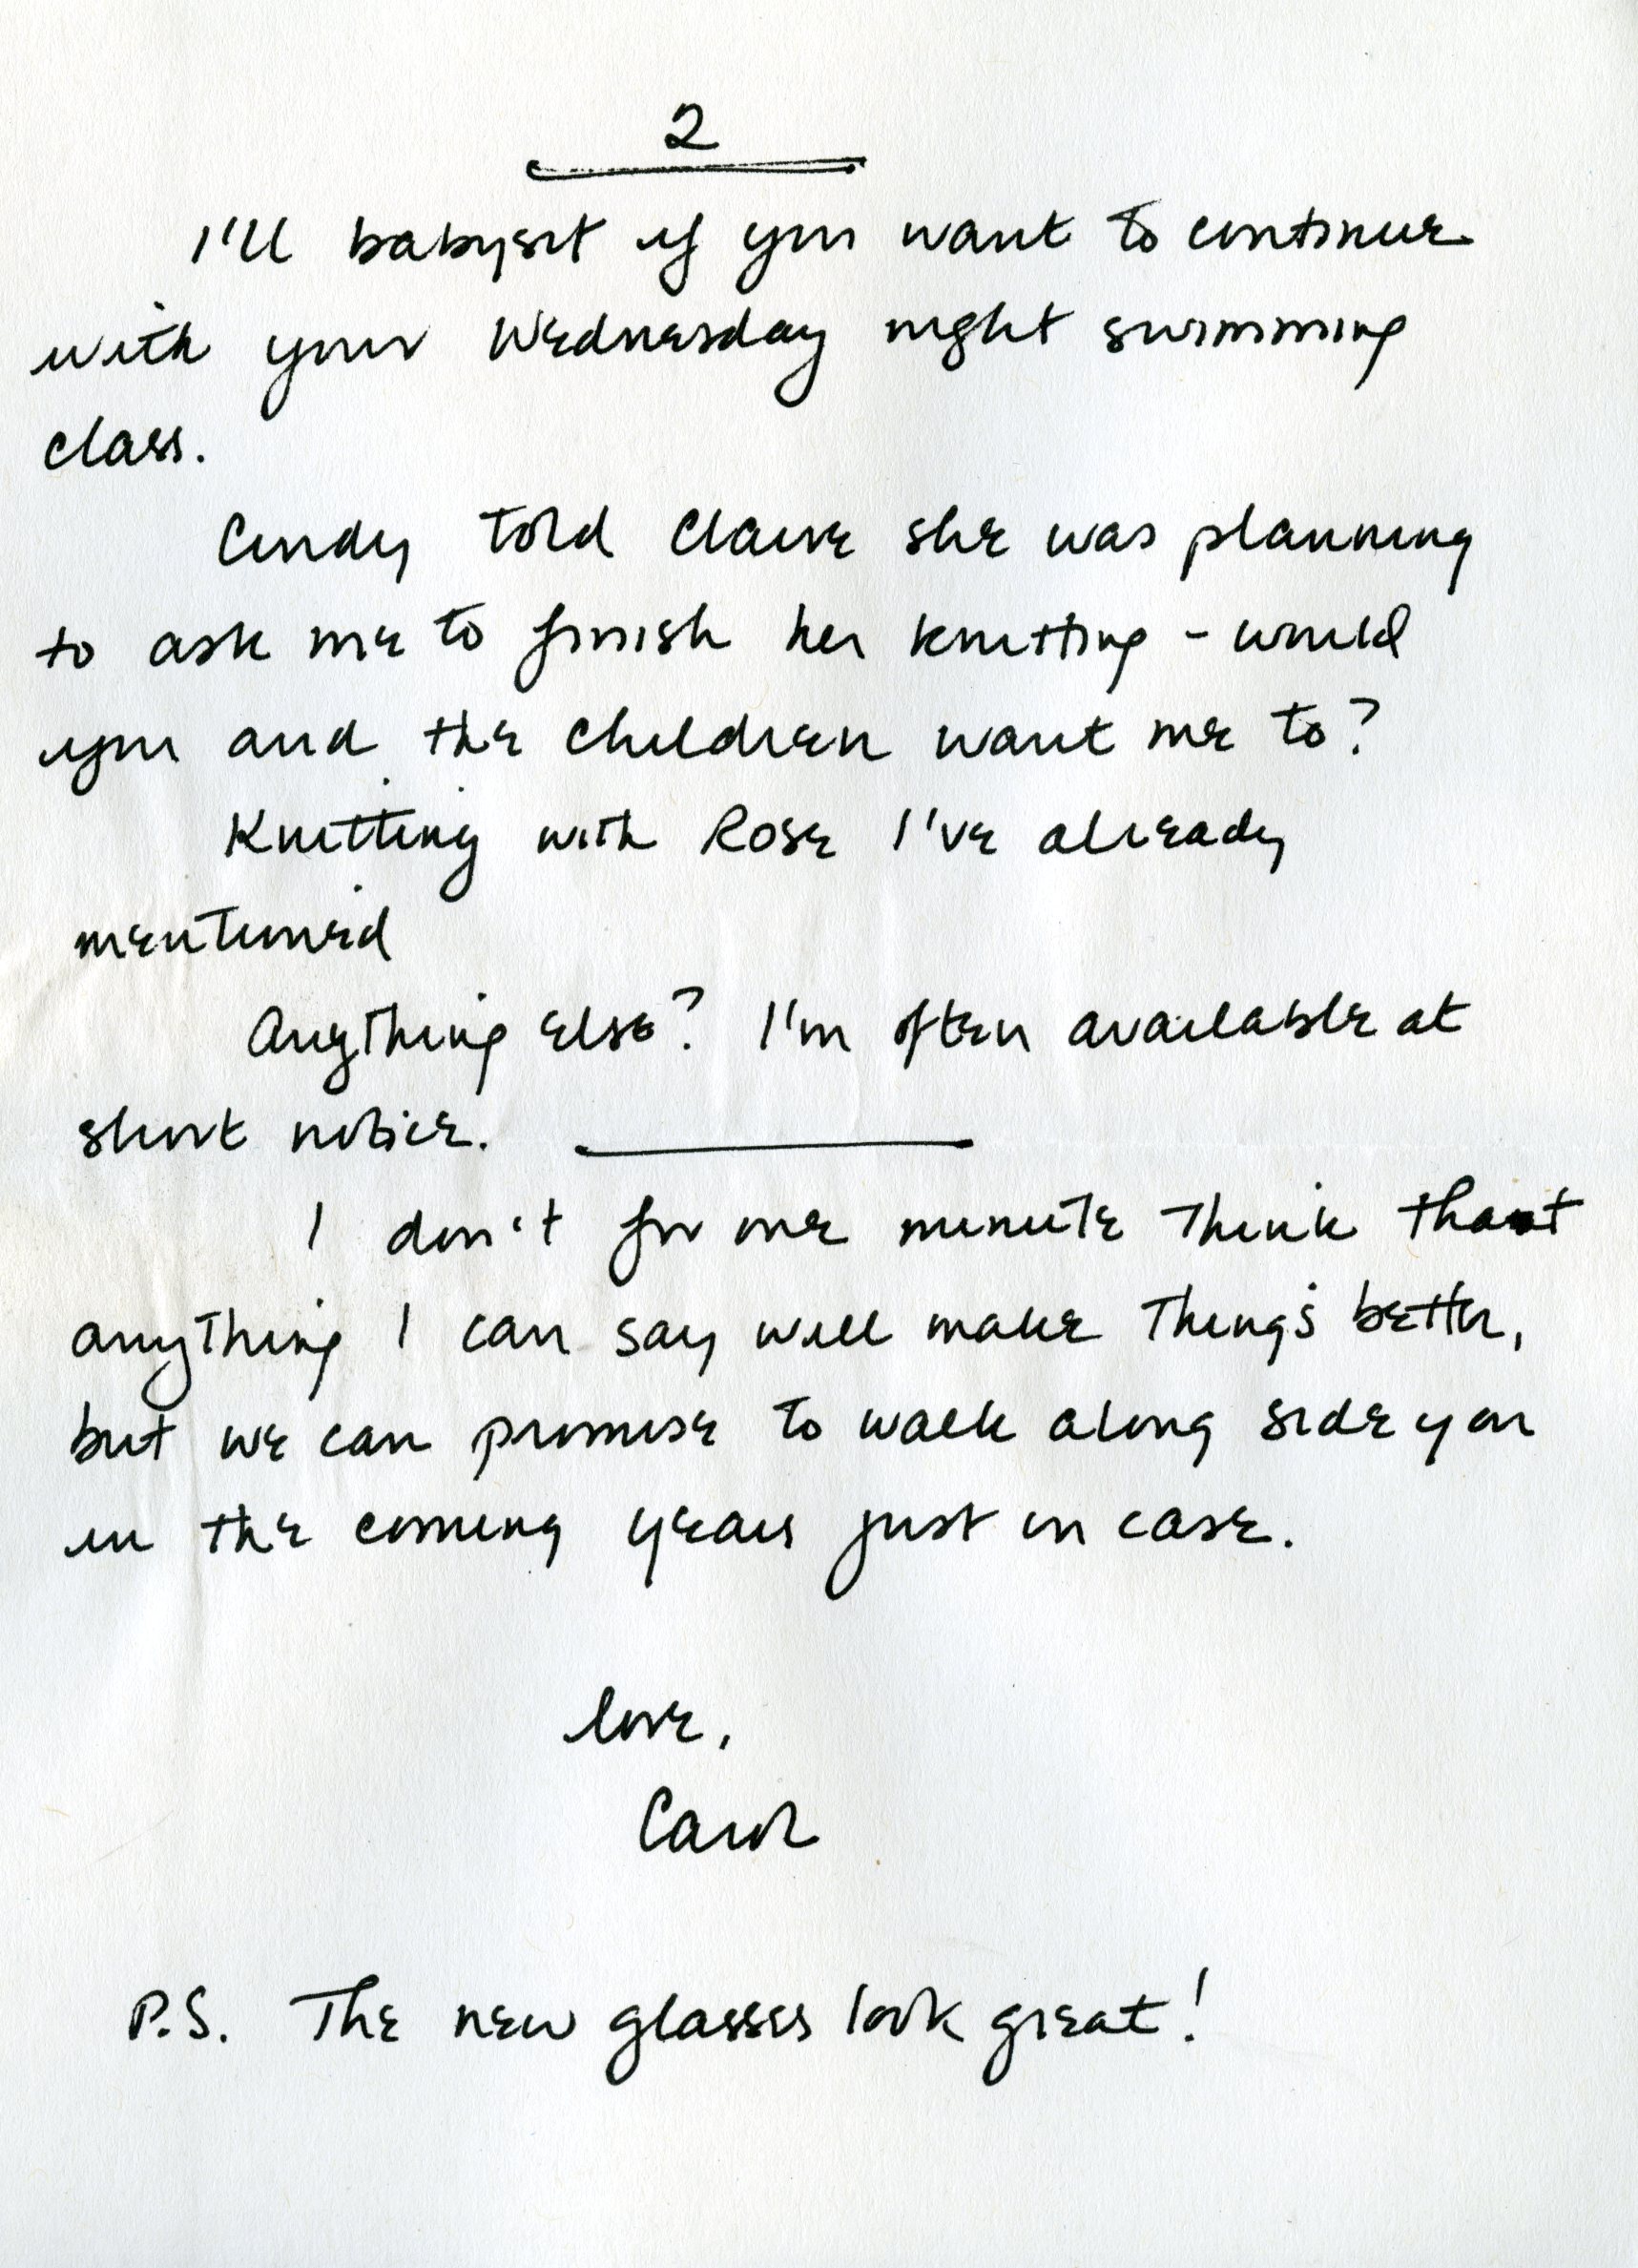 2
I'll babysit if you want to continue
with your Wednesday night swimming
class.
Cindy told Claire she was planning
to ask me to finish her knitting - would
you and the children want me to?
Knitting with Rose I've already
mentioned
Anything else? I'm often available at
short notice.
I don't for one minute think that
anything I can say will make things better,
but we can promise to walk along side you
in the coming years just in case.
love,
Carol
P.S. The new glasses look great!